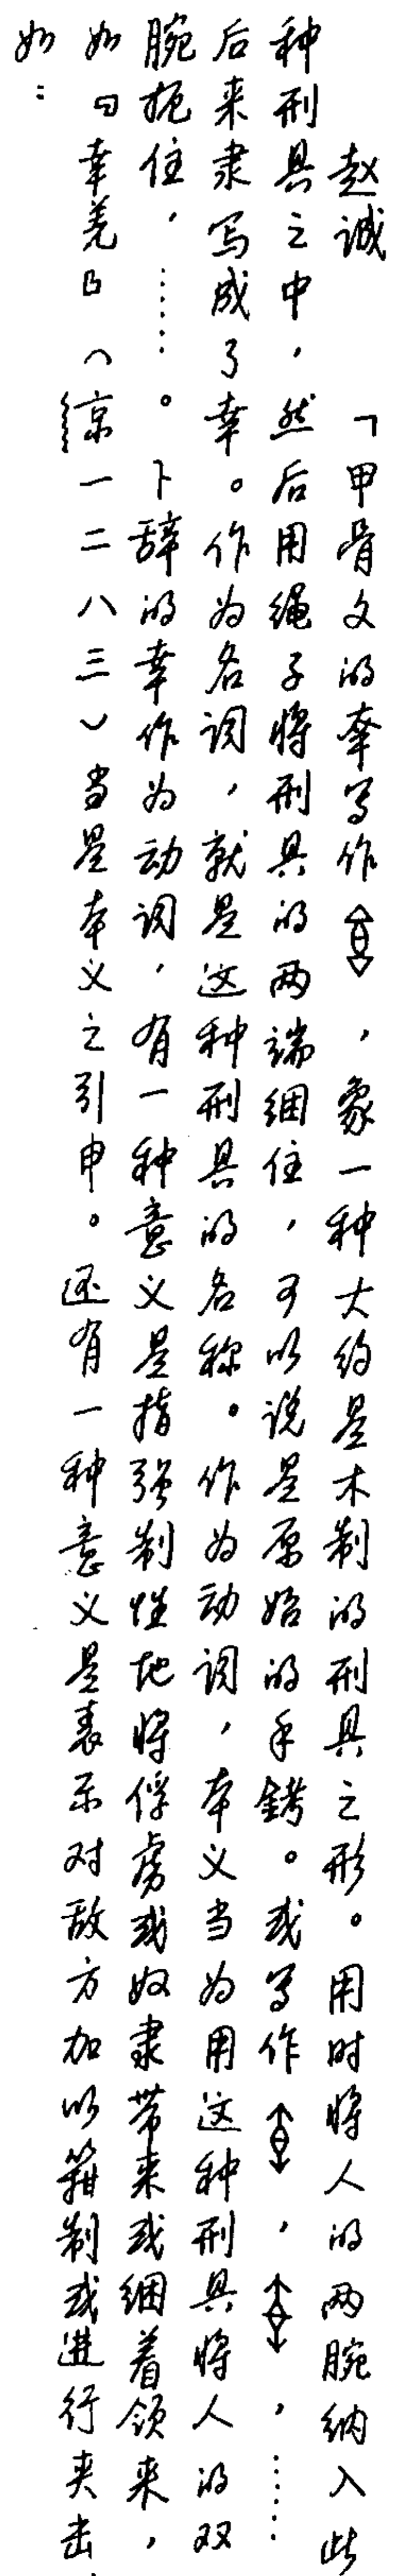 赵诚　「甲骨文的㚔写作，象一种大约是木制的刑具之形。用时将人的两腕纳入此
种刑具之中，然后用绳子将刑具的两端捆住，可以说是原始的手铐。或写作，，……
后来隶写成了幸。作为名词，就是这种刑具的名称。作为动词，本义当为用这种刑具将人的双
腕扼住，……。卜辞的幸作为动词，有一种意义是指强制性地将俘虏或奴隶带来或捆着领来，
如『幸羌』（京一二八三）当是本义之引申。还有一种意义是表示对敌方加以箝制或进行夹击，
如：